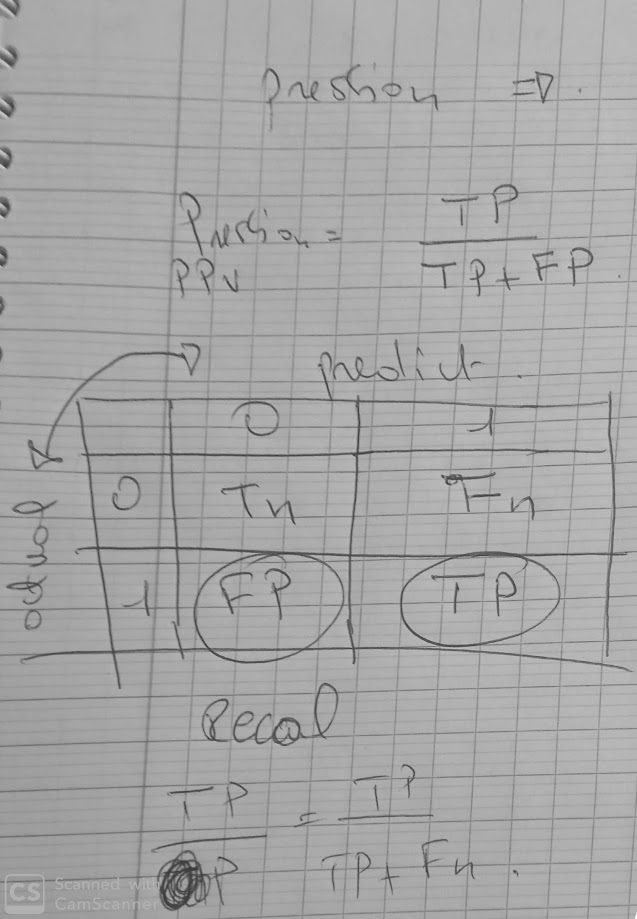 Pression ⇒ .
Pression = TP
PPV TP + FP .
predict .
0 1
actual 0 Tn Fn
1 FP TP
Recal
TP = TP
P TP + Fn .
CS Scanned with
CamScanner